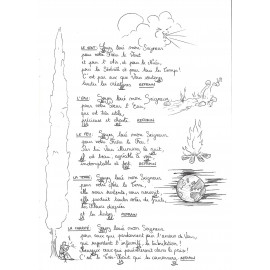 LE VENT: Soyez loué mon Seigneur
pour votre Frère le Vent
et pour l'air, et pour la Nuée,
pour la Sérénité et pour tous les Temps!
C'est par eux que Vous soutenez
toutes les créatures REFRAIN
L'EAU: Soyez loué mon Seigneur
pour votre Sœur l'Eau,
qui est très utile,
précieuse et chaste. REFRAIN
LE FEU: Soyez loué mon Seigneur
pour votre Frère le Feu!
Par lui Vous illuminez la nuit,
il est beau, agréable à
indomptable et fort REFRAIN
LA TERRE: Soyez loué mon Seigneur
pour votre Mère la Terre,
elle nous soutient, nous nourrit
elle produit toutes sortes de fruits,
les fleurs diaprées
et les herbes REFRAIN
Soyez loué mon Seigneur
pour ceux qui pardonnent pour l'amour de Vous,
qui supportent l'infirmité, la tribulation!
ceux qui persévèrent dans la paix!
C'est le Très-Haut qui les couronnera REFRAIN